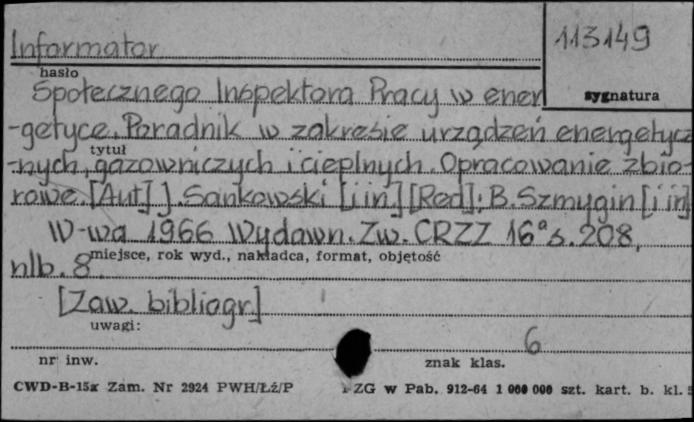 Informator
113149
hasło
sygnatura
Społecznego Inspektora Pracy w ener
-getyce. Poradnik w zakresie urządzeń energetycz
tytuł
-nych, gazowniczych i cieplnych. Opracowanie zbio-
rowe. [Aut] J. Sankowski [i in] [Red]: B. Szmygin [i in]
W-wa 1966 Wydawn. Zw. CRZZ 16° s. 208,
miejsce, rok wyd., nakładca, format, objętość
nlb. 8
[Zaw. bibliogr.]
uwagi:
6
nr inw.
znak klas.
CWD-B-15a Zam. Nr 2924 PWH/Łż/P
ZG w Pab. 912-64 1 000 000 szt. kart. b. kl.